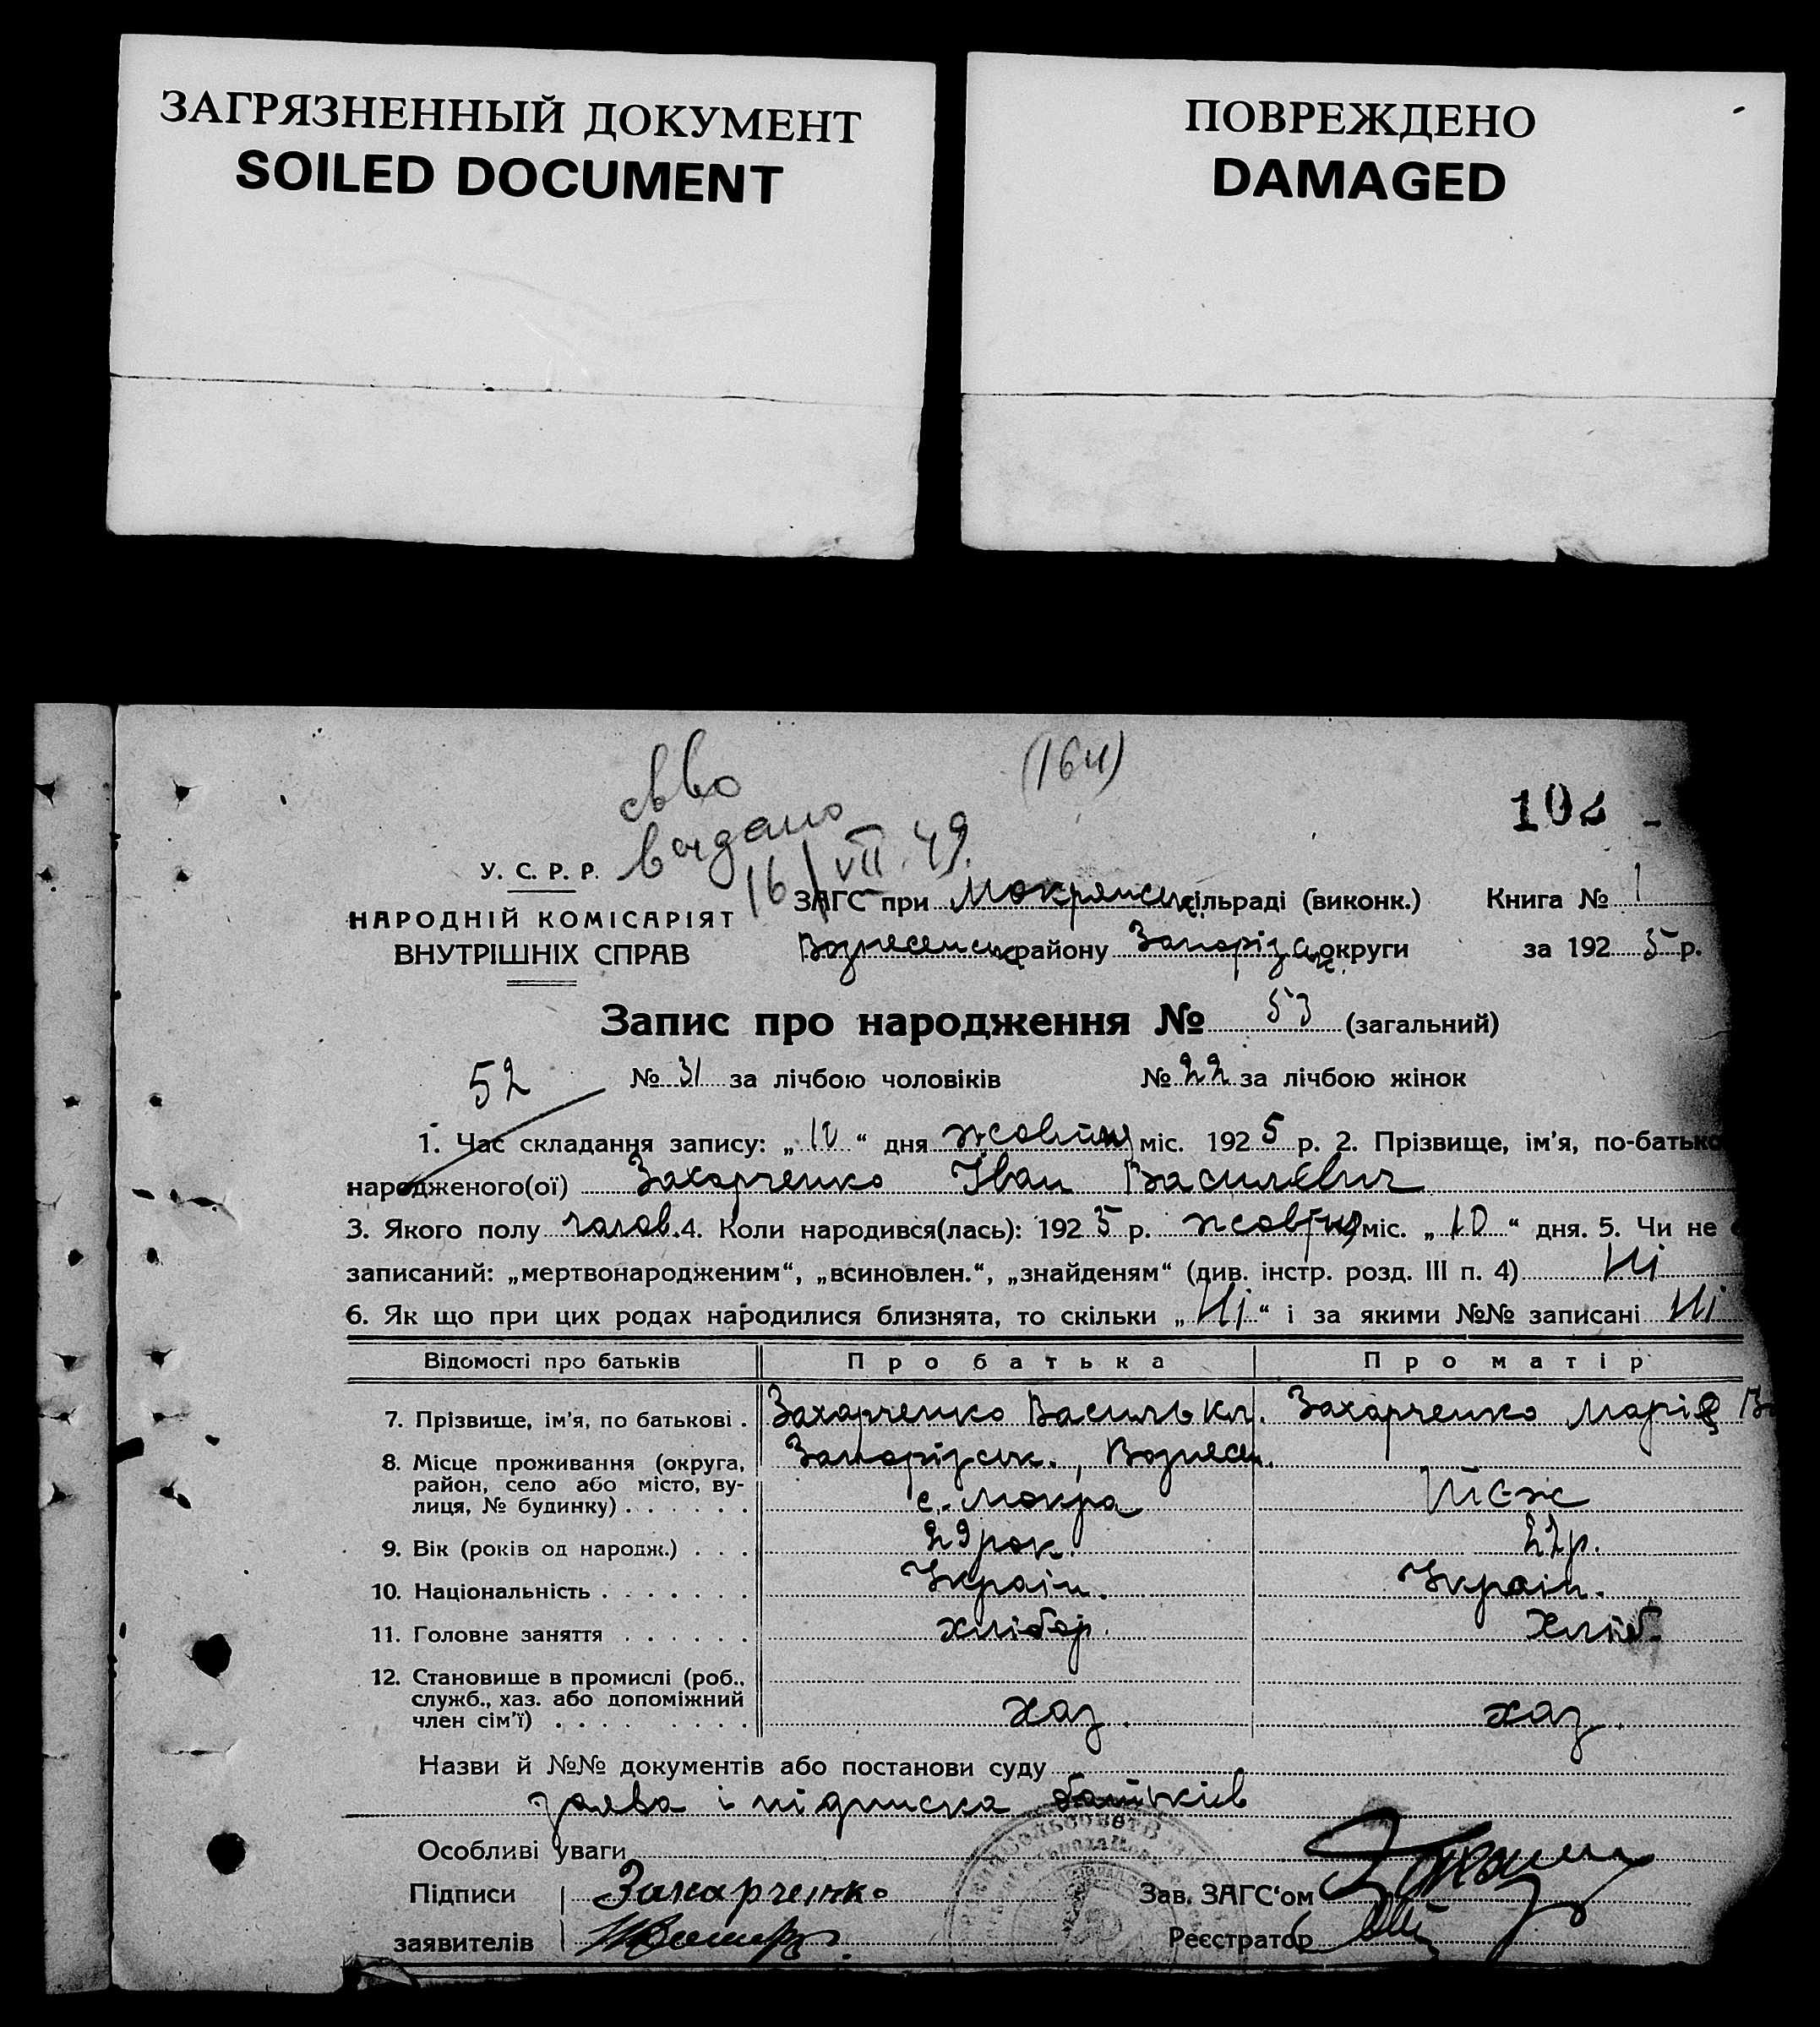 ЗАГРЯЗНЕННЫЙ ДОКУМЕНТ
SOILED DOCUMENT
ПОВРЕЖДЕНО
DAMAGED
св во
выдано
16/VII 49.
(164)
102
У. С. Р. Р.
НАРОДНІЙ КОМІСАРІЯТ
ВНУТРІШНІХ СПРАВ
ЗАГС при Мокрянськ. сільраді (виконк.) Книга № 1
Вознесенськ району Запорізьк. округи за 1925 р.
Запис про народження № 53 (загальний)
52
№ 31 за лічбою чоловіків № 22 за лічбою жінок
1. Час складання запису: „ “ дня жовтня міс. 1925 р. 2. Прізвище, ім’я, по-батько
народженого(ої) Захарченко Іван Василєвич
3. Якого полу чолов. 4. Коли народився(лась): 1925 р. жовтня міс. „10“ дня. 5. Чи не
записаний: „мертвонародженим“, „всиновлен.“, „знайденям“ (див. інстр. розд. III п. 4) Ні
6. Як що при цих родах народилися близнята, то скільки „Ні“ і за якими №№ записані Ні
Відомості про батьків Про батька Про матір
7. Прізвище, ім’я, по батькові . Захарченко Василь Захарченко Марія
8. Місце проживання (округа, Запорізськ., Вознесен.
район, село або місто, ву-
лиця, № будинку) . . . . . . с. Мокра теж
9. Вік (років од народж.) . . . 29 рок. р.
10. Національність . . . . . . . Україн. Україн.
11. Головне заняття . . . . . . хлібор. хліб.
12. Становище в промислі (роб.,
служб., хаз. або допоміжний
член сім’ї) . . . . . . . . . хаз. хаз.
Назви й №№ документів або постанови суду
заява і підписка батьків
Особливі уваги
Підписи Захарченко Зав. ЗАГС‘ом
заявителів Реєстратор